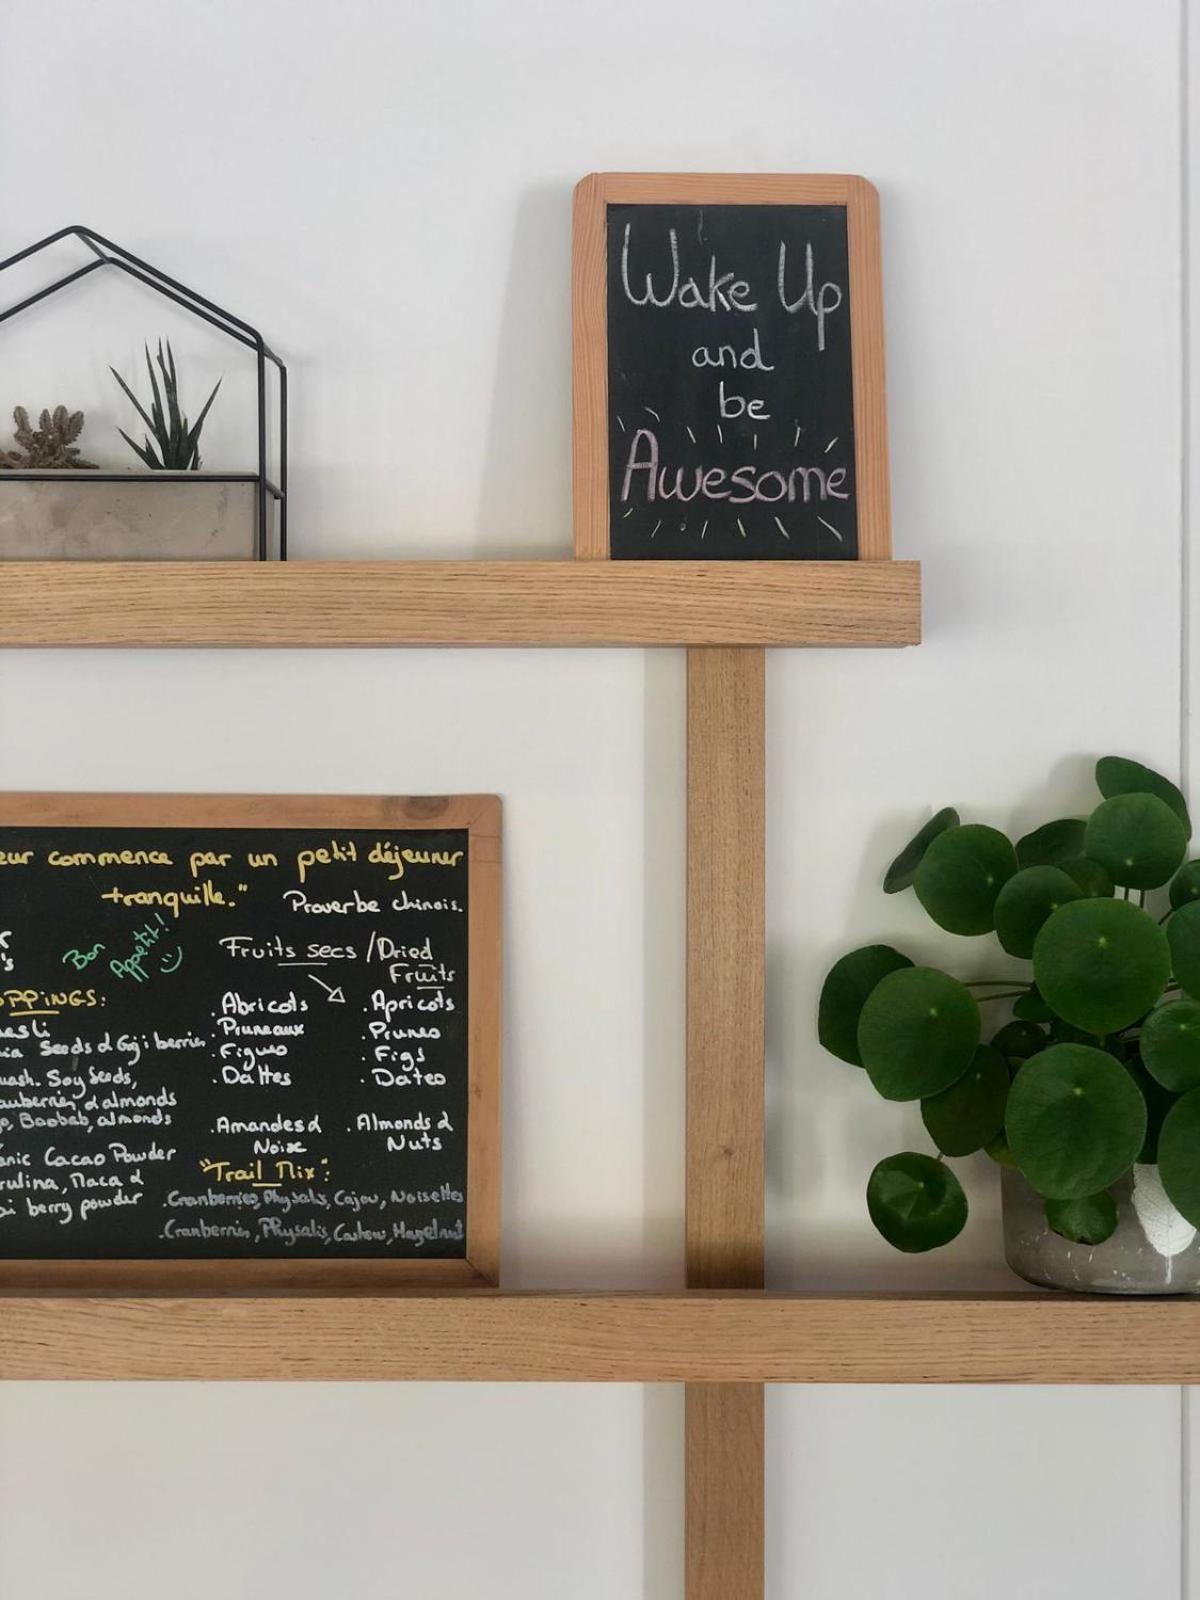 Wake Up
and
be
Awesome
commence par un petit déjeuner
tranquille."
Proverbe chinois.
Bon
Appétit!
Fruits secs / Dried
Fruits
. Abricots
. Pruneaux
. Figues
. Dattes
. Amandes &
Noix
. Apricots
. Prunes
. Figs
. Dates
. Almonds &
Nuts
Seeds & Goji berries
Soy Seeds,
& almonds
Baobab, almonds
Cacao Powder
Maca &
berry powder
"Trail Mix":
. Cranberries, Physalis, Cajou, Noisettes
. Cranberries, Physalis, Cashew, Hazelnut